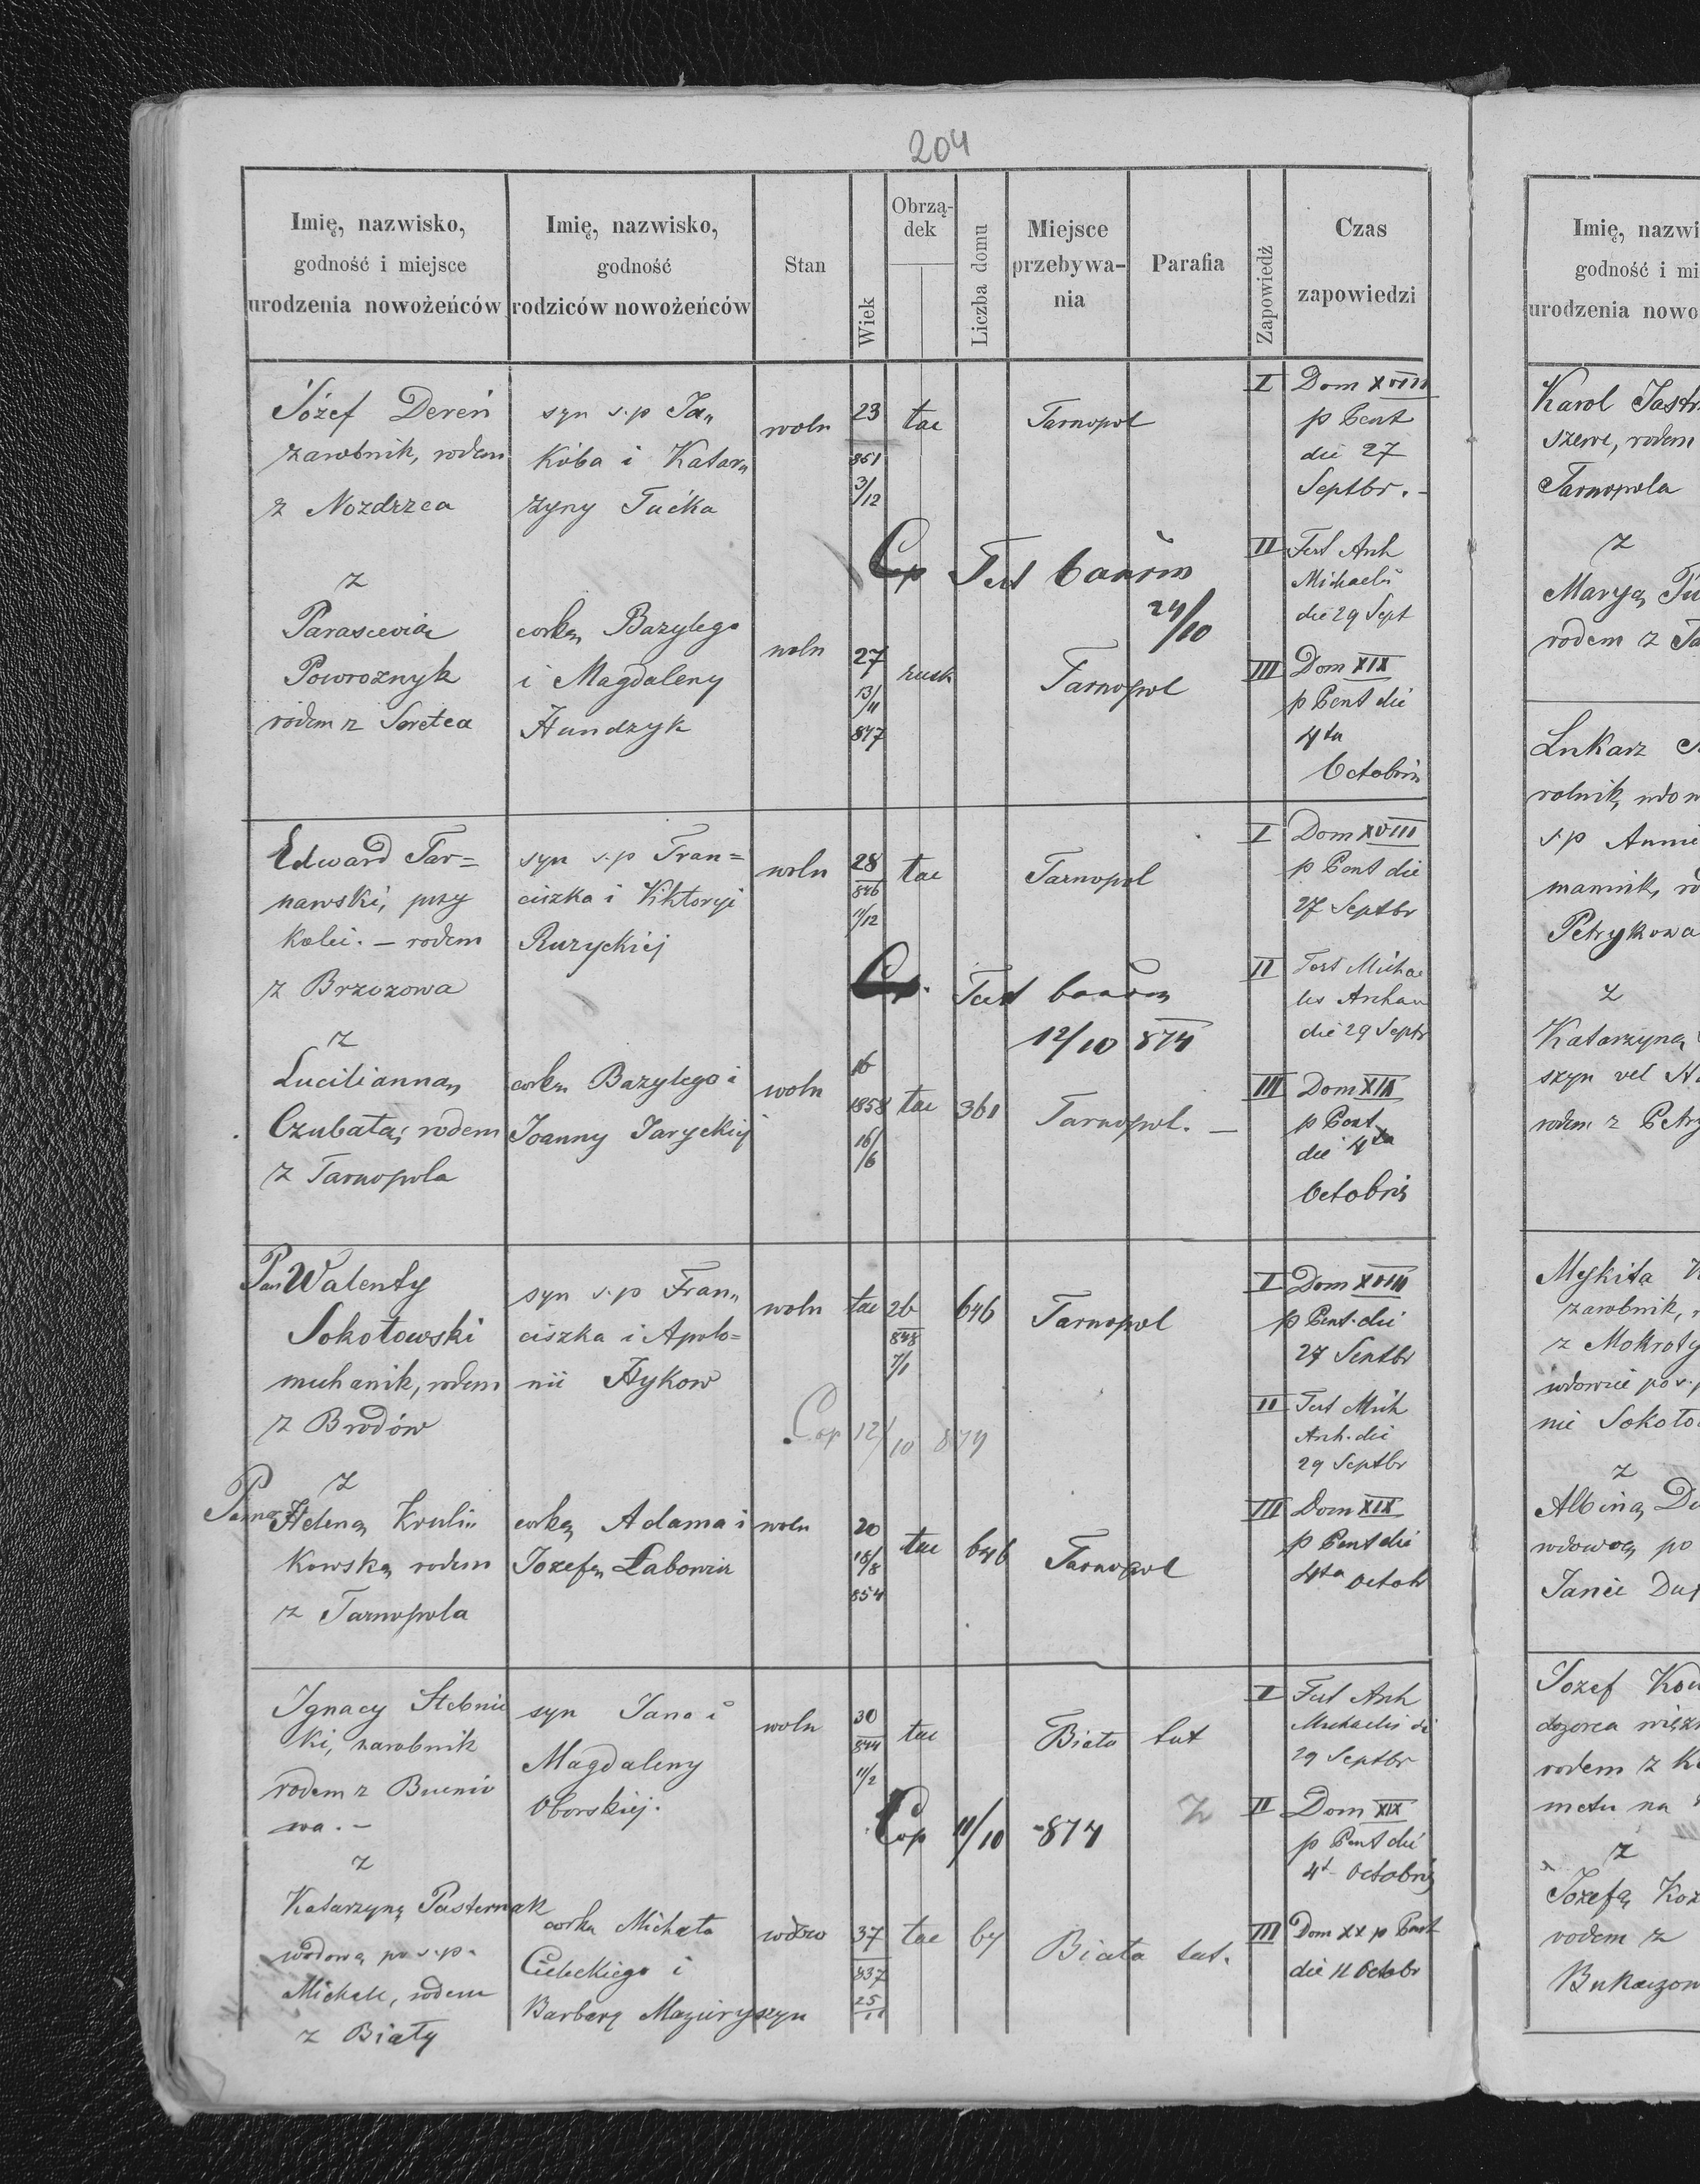 204
Imię, nazwisko,
godność i miejsce
urodzenia nowożeńców
Imię, nazwisko,
godność
rodziców nowożeńców
Stan
Wiek
Obrzą-
dek
Liczba domu
Miejsce
przebywa-
nia
Parafia
Zapowiedź
Czas
zapowiedzi
Józef Dereń
zarobnik, rodem
z Nozdrzca
syn s.p Ja„
kóba i Katar„
zyny Tućka
woln
23
851
3/12
łac
Tarnopol
I Dom XVIII
p Pent
die 27
Septbr.-
Cp Test
24/10
II Fest Arch
Michaelis
die 29 Sept
z
Parascevią
Powroznyk
rodem z Seretea
corką Bazylego
i Magdaleny
Hundzyk
woln
27
13/11
847
rusk
Tarnopol
III Dom XIX
p Pent die
4ta
Octobris
Edward Tar=
nawski, przy
kolei. – rodem
z Brzozowa
syn s.p Fran=
ciszka i Wiktoryi
Ruzyckiej
woln
28
846
11/12
łac
Tarnopol
I Dom XVIII
p Pent die
27 Septbr
Cp. Test
12/10 874
II Fest Micha
lis Archan
die 29 Septr
z
Luciliannaą
Czubatą; rodem
z Tarnopola
corką Bazylego i
Joanny Jaryckiej
woln
16
1858
16/6
łac
361
Tarnopol. –
III Dom XIX
p Pent
die 4ta
Octobris
Pan Walenty
Sokołowski
mechanik, rodem
z Brodów
syn s.p Fran„
ciszka i Apolo=
nii Hykow
woln
łac
26
848
7/1
646
Tarnopol
I Dom XVIII
p Pent. die
27 Septbr
Cop 12/10 874
II Fest Mich
Arch. die
29 Septbr
z
Panną Heleną Kruli„
kowską rodem
z Tarnopola
corką Adama i
Jozefy Łabowicz
woln
20
18/8
854
łac
646
Tarnopol
III Dom XIX
p Pent die
4ta Octob
Ignacy Stebnic
ki, zarobnik
rodem z Bucnio
wa. –
syn Jana i
Magdaleny
Oborskiej.
woln
30
844
11/2
łac
Biała tut
I Fest Arch
Michaelis di
29 Septbr
Cop 11/10 -874
II Dom XIX
p Pent die
4t Octobris
z
Katarzyną Pasternak
wdową po s.p.
Michale, rodem
z Biały
corką Michała
Cieleckiego i
Barbary Mazuryszyn
wdow
37
837
25/11
łac
64
Biała tut.
III Dom XX p Pent
die 11 Octobr
Imię, nazwi
godność i mi
urodzenia nowo
Karol Jastr
szewc, rodem
Tarnopola
z
Maryą
rodem z Ta
Łukarz
rolnik,
s.p Annie
Petrykowa
z
Katarzyną
szyn vel
rodem z Petry
Mykita
zarobnik,
z Mokroty
wdowiec po s.p
nie Sokoło
z
Albiną
wdową po
Janie
Jozef Kow
dozorca więz
rodem z
z
Jozefą Koz
rodem z